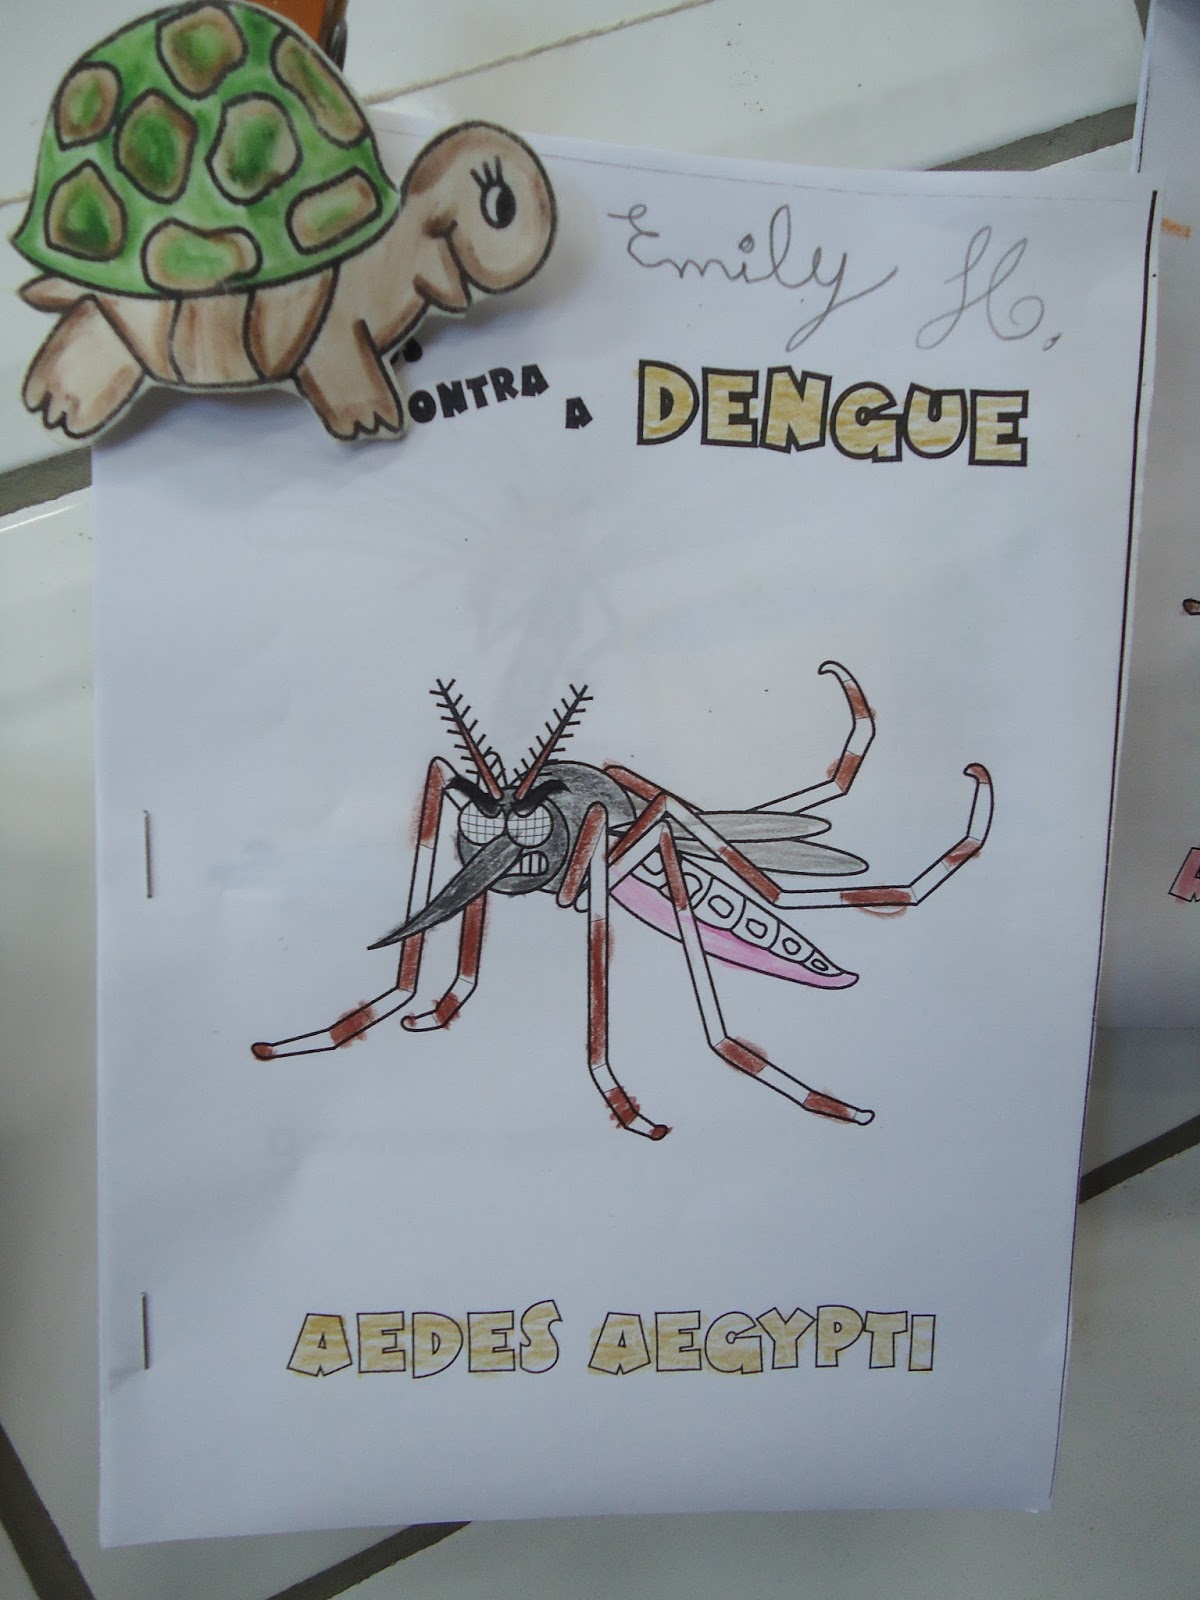 Emily H.
ONTRA A DENGUE
AEDES AEGYPTI